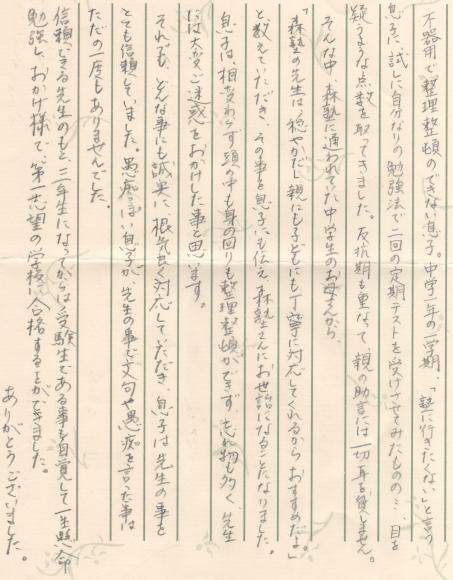 不器用で整理整頓のできない息子。中学一年の一学期、「塾に行きたくない」と言う
息子に、試しに自分なりの勉強法で二回の定期テストを受けさせてみたものの…、目を
疑うような点数を取ってきました。反抗期も重なって、親の助言には一切耳を貸しません。
そんな中、森塾に通われていた中学生のお母さんから、
「森塾の先生は、穏やかだし親にも子どもにも丁寧に対応してくれるからおすすめだよ。」
と教えていただき、その事を息子にも伝え、森塾さんにお世話になることになりました。
息子は、相変わらず頭の中も身の回りも整理整頓ができず、忘れ物も多く、先生
には大変ご迷惑をおかけした事と思います。
それでも、どんな事にも誠実に、根気よく対応していただき、息子は先生の事を
とても信頼していました。愚痴っぽい息子が、先生の事で文句や愚痴を言った事は
ただの一度もありませんでした。
信頼できる先生のもと、三年生になってからは受験生である事を自覚して一生懸命
勉強し、おかげ様で、第一志望の学校に合格することができました。
ありがとうございました。